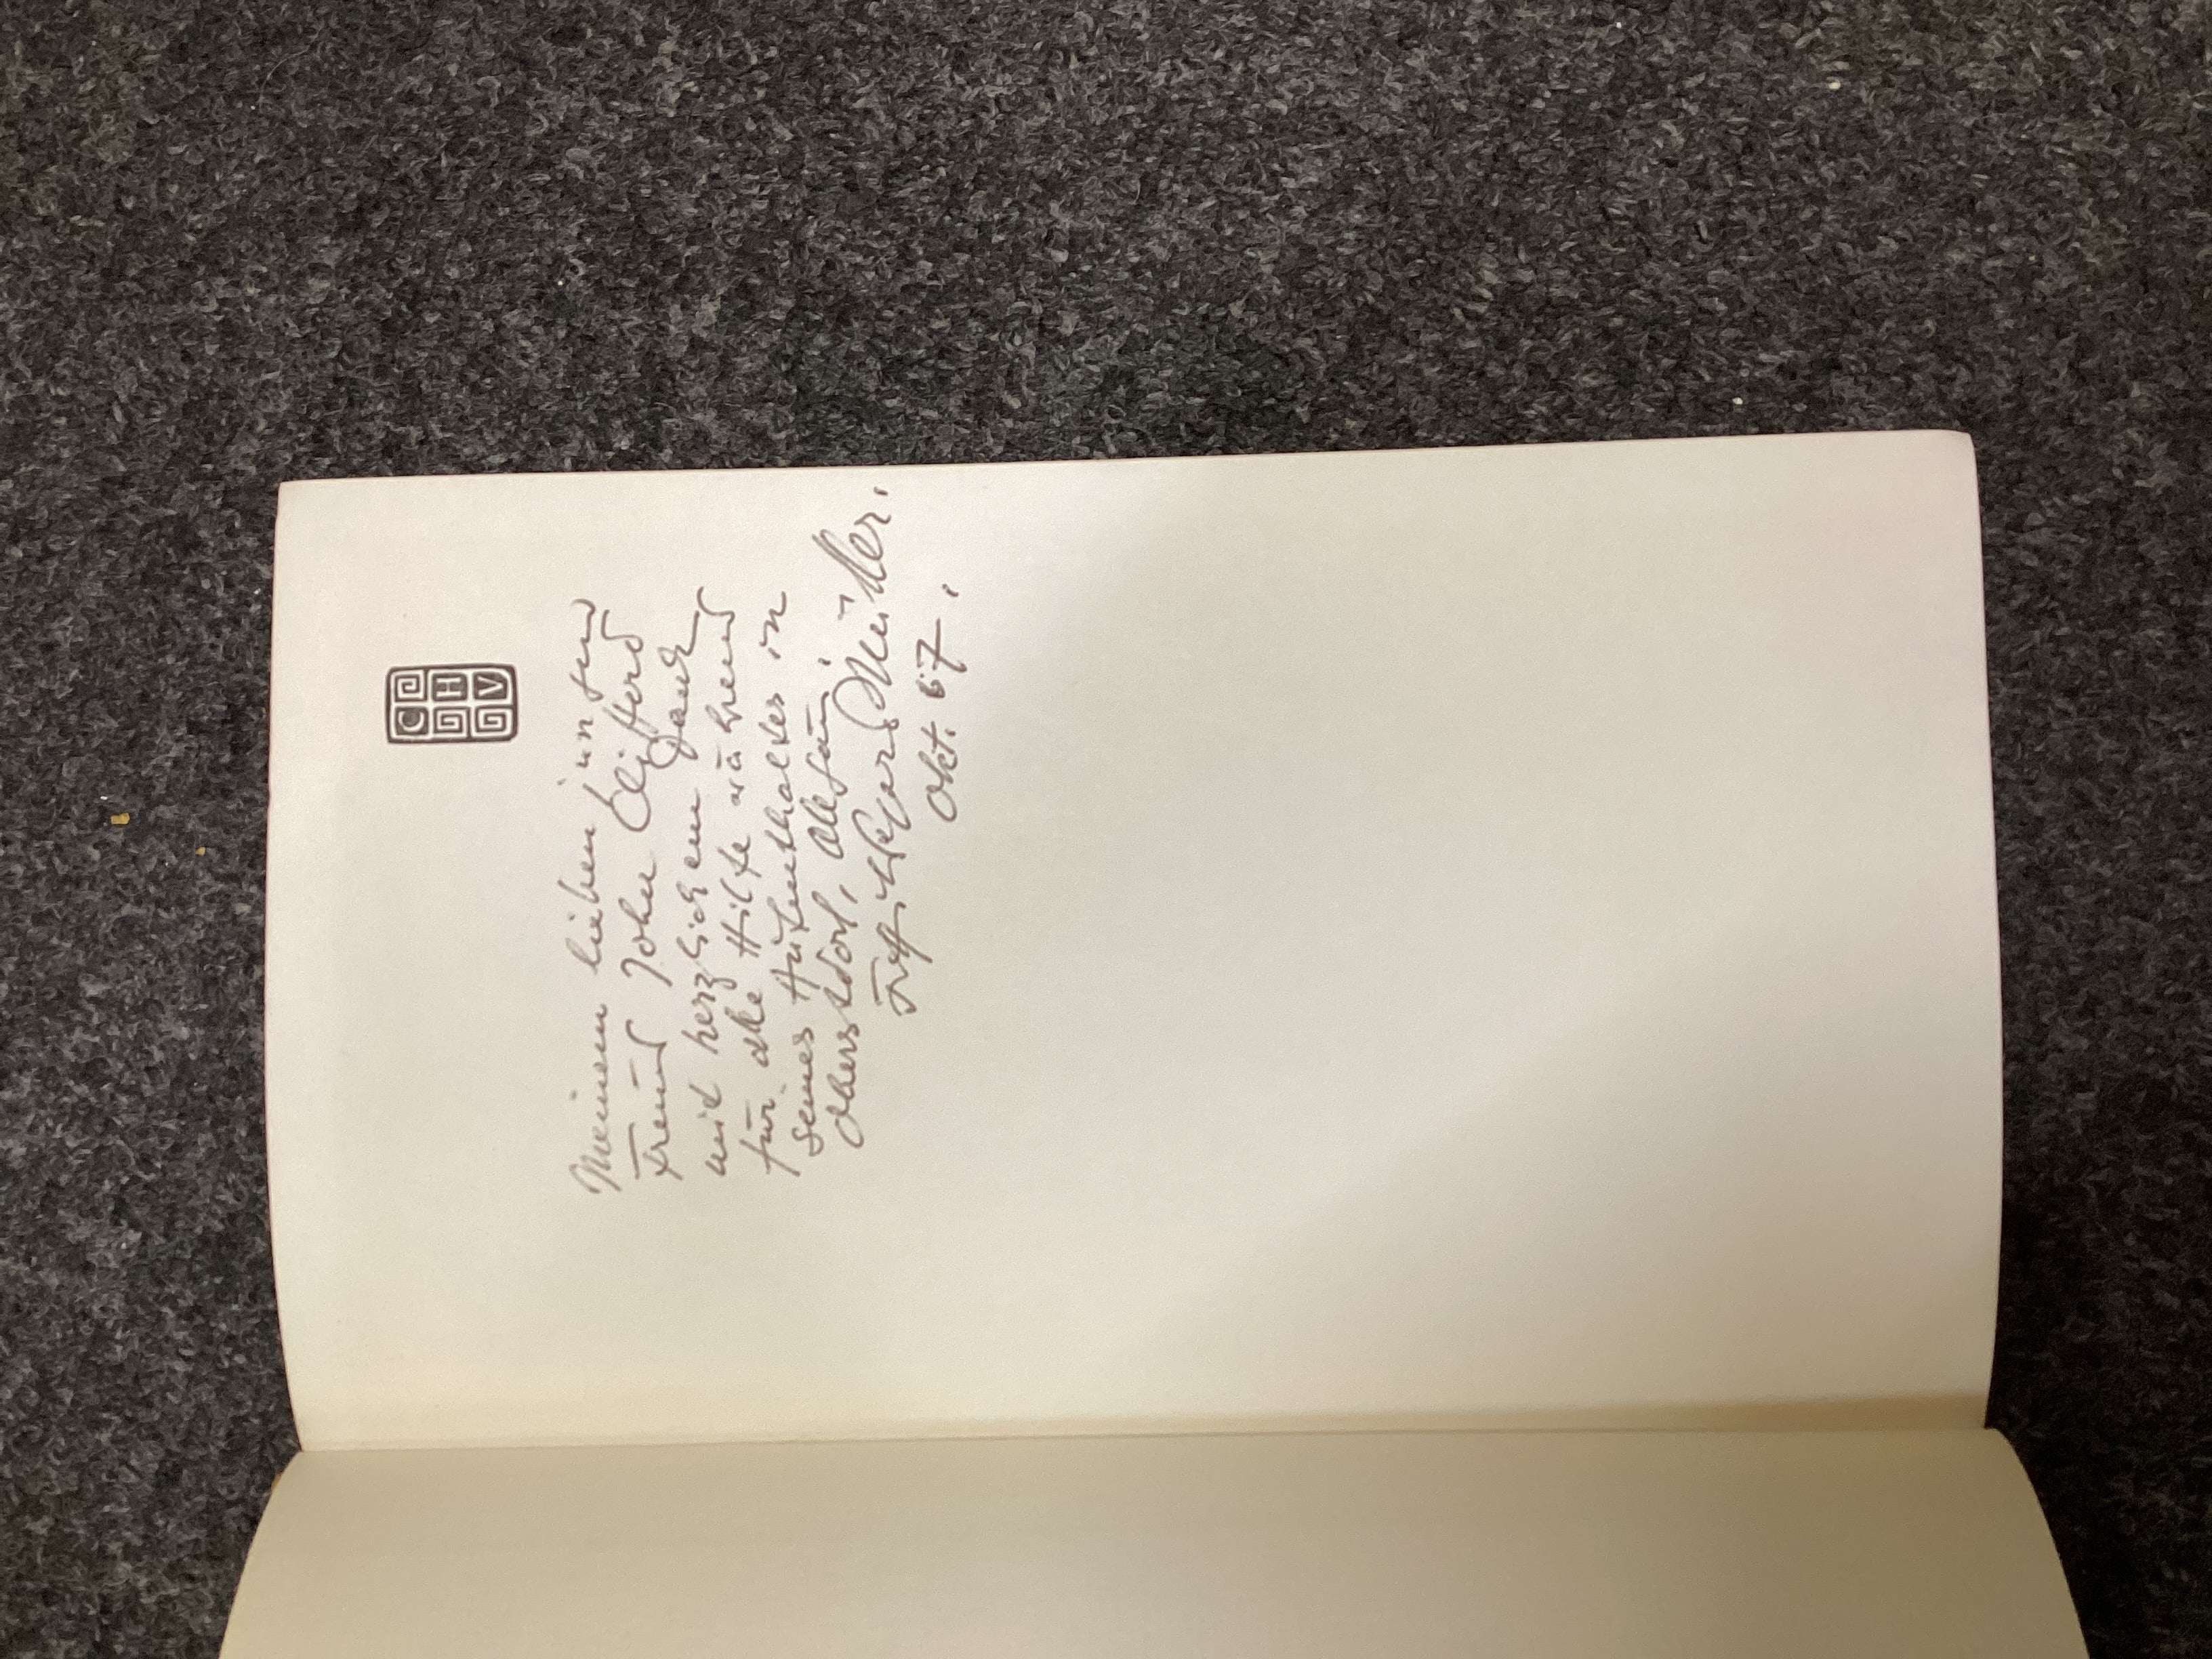 C
H
V
Meinem lieben jungen
Freund John Clifford
mit herzlichem Dank
für alle Hilfe während
seines Aufenthaltes in
Oberstdorf, Allgäu,
Müller.
Okt. 67.